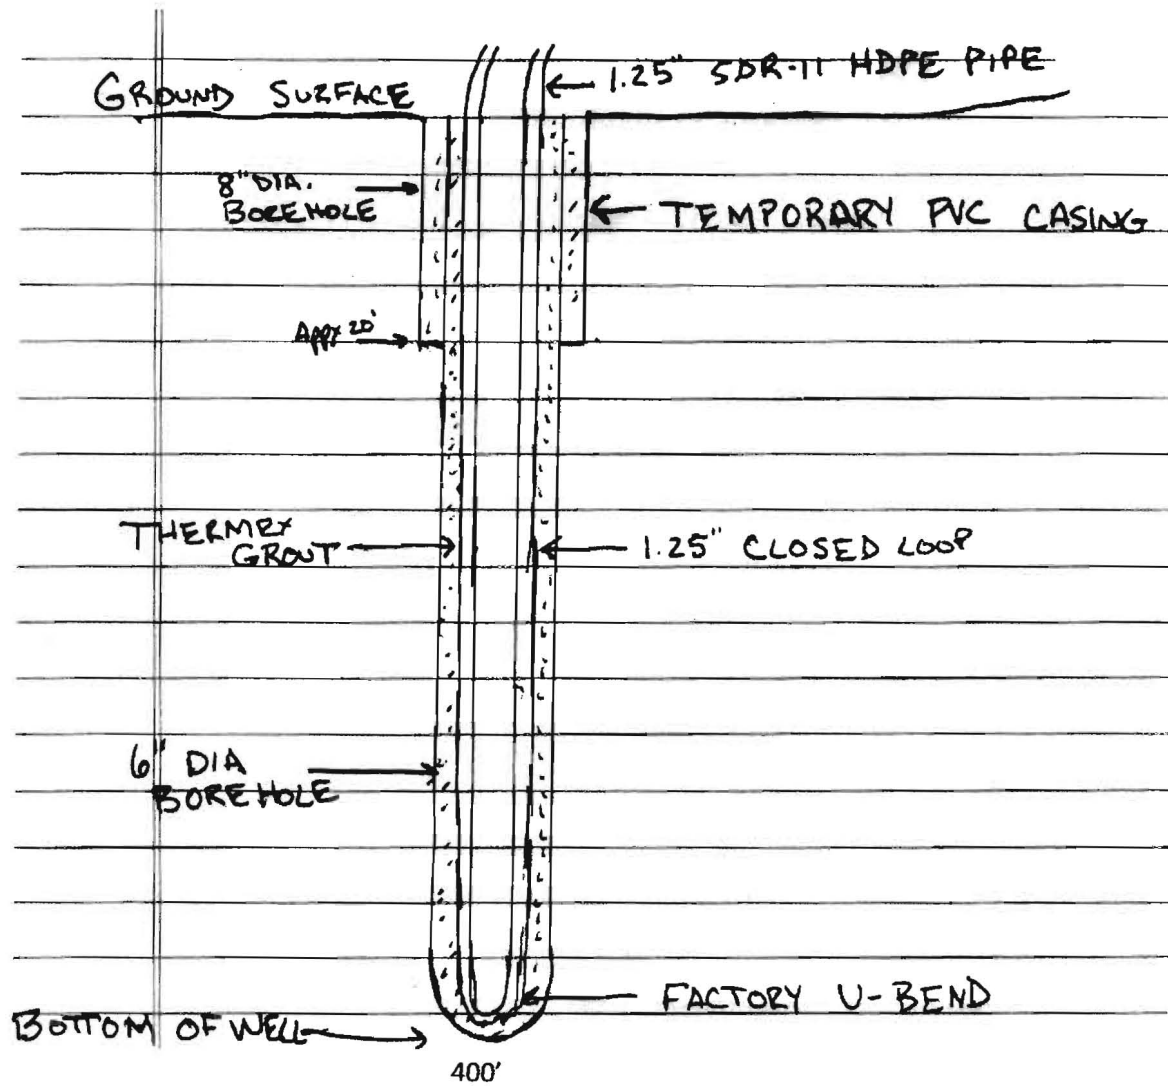 1.25" SDR-11 HDPE PIPE
GROUND SURFACE
8" DIA.
BOREHOLE
TEMPORARY PVC CASING
APPX 20'
THERMEX
GROUT
1.25" CLOSED LOOP
6" DIA
BOREHOLE
FACTORY U-BEND
BOTTOM OF WELL
400'